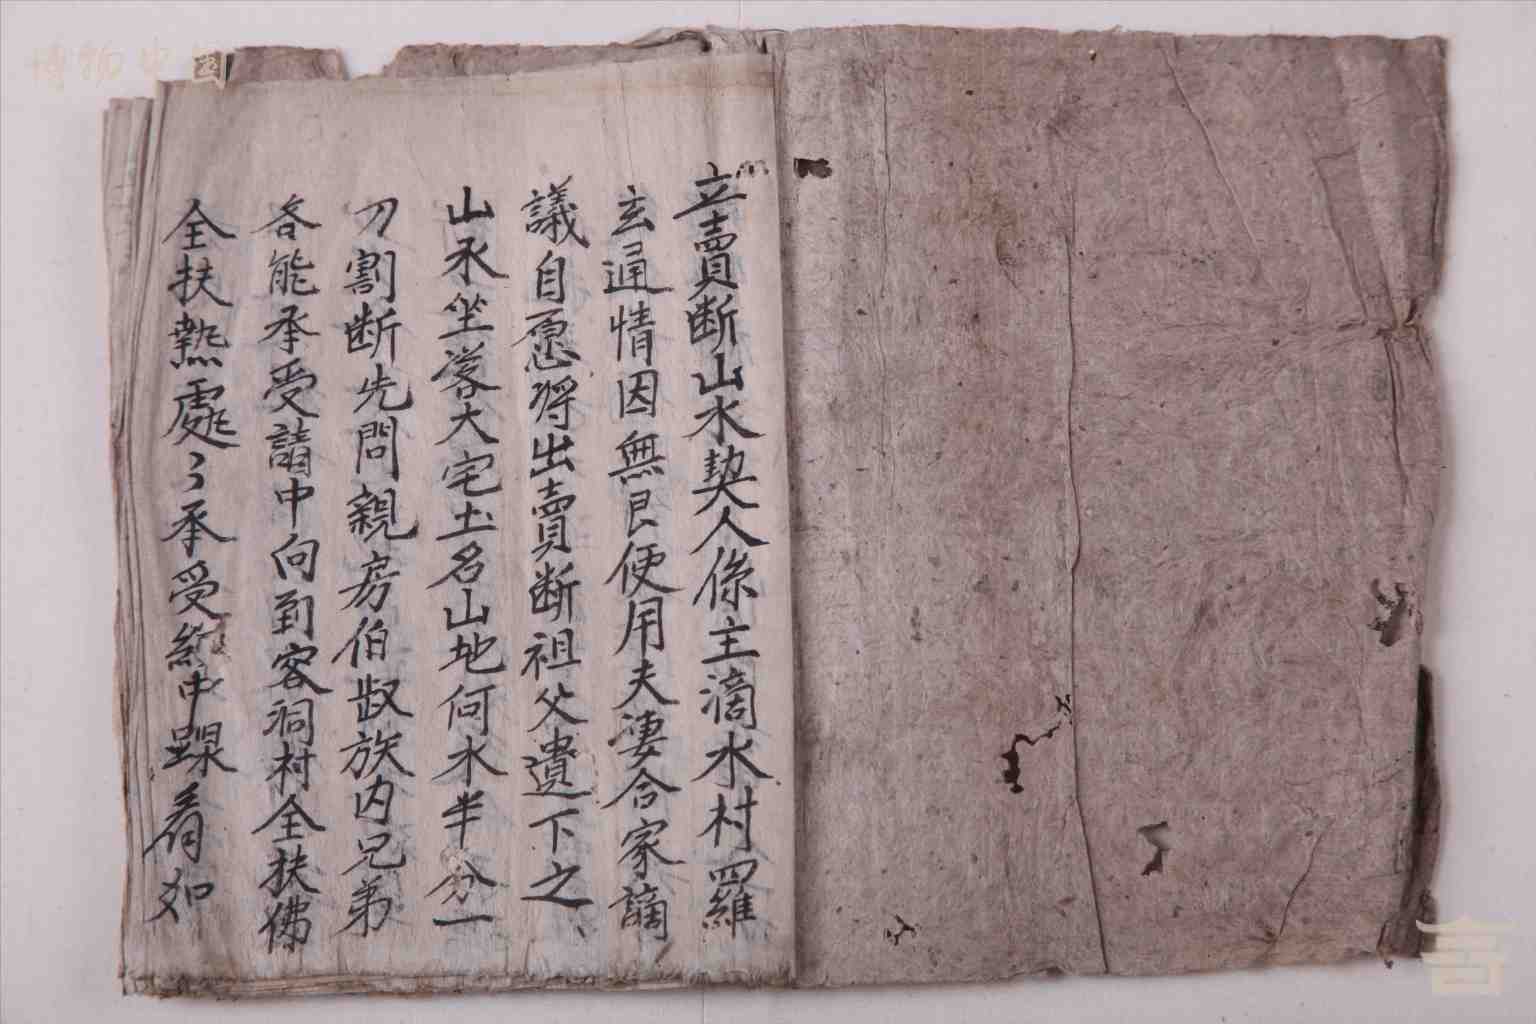 立賣断山水契人係主滴水村羅
玄通情因無艮便用夫凄合家謫
議自愿將出賣断祖父遺下之
山水坐落大宅土名山地何水半分一
刀割断先問親房伯叔族内兄弟
各能承受請中向到容洞村全扶佛
全扶熱處了承受中踩看如
博物中国